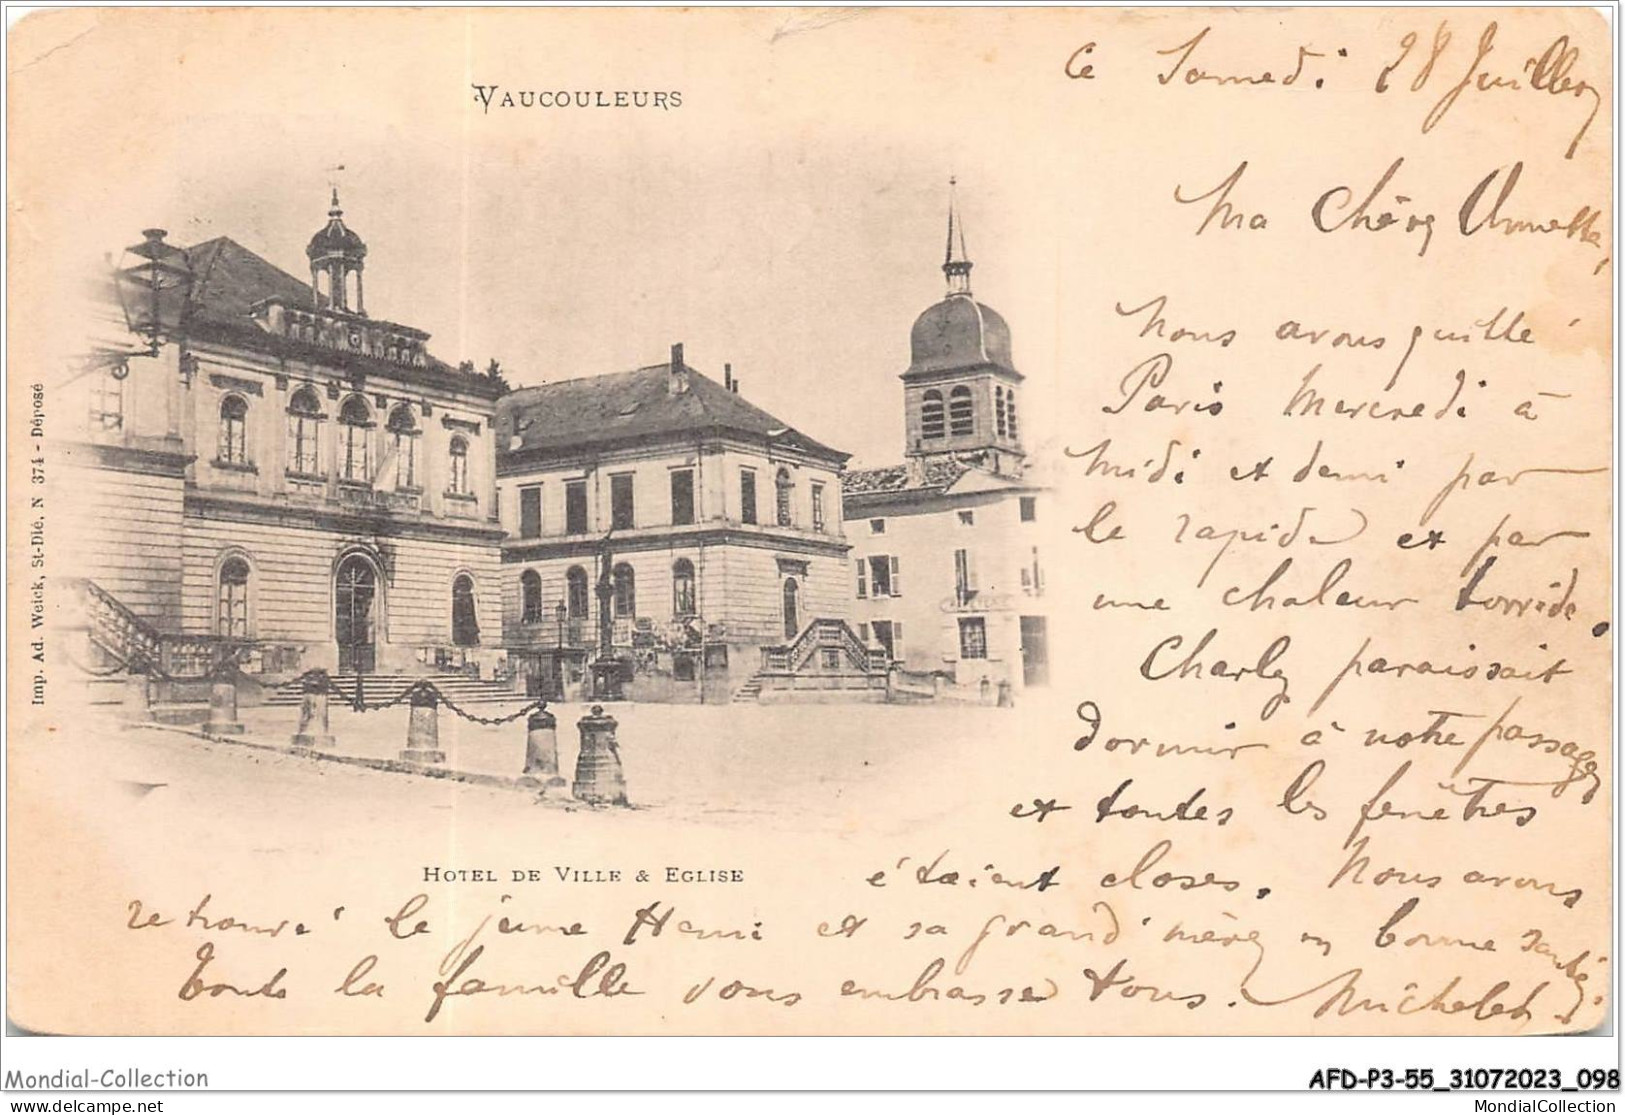 VAUCOULEURS
Imp. Ad. Weick, St-Dié. N 374 - Déposé
HOTEL DE VILLE & EGLISE
Ce Samedi 28 Juillet
Ma Chère Annette,
Nous avons quitté
Paris Mercredi à
Midi et demi par
le rapide et par
une chaleur torride.
Charly paraissait
dormir à notre passage
et toutes les fenêtres
étaient closes. Nous avons
retrouvé le jeune Henri et sa grand'mère en bonne santé.
Toute la famille vous embrasse tous. Michelet
Mondial-Collection
mondialcollection sur delcampe.net
AFD-P3-55_31072023_098
MondialCollection